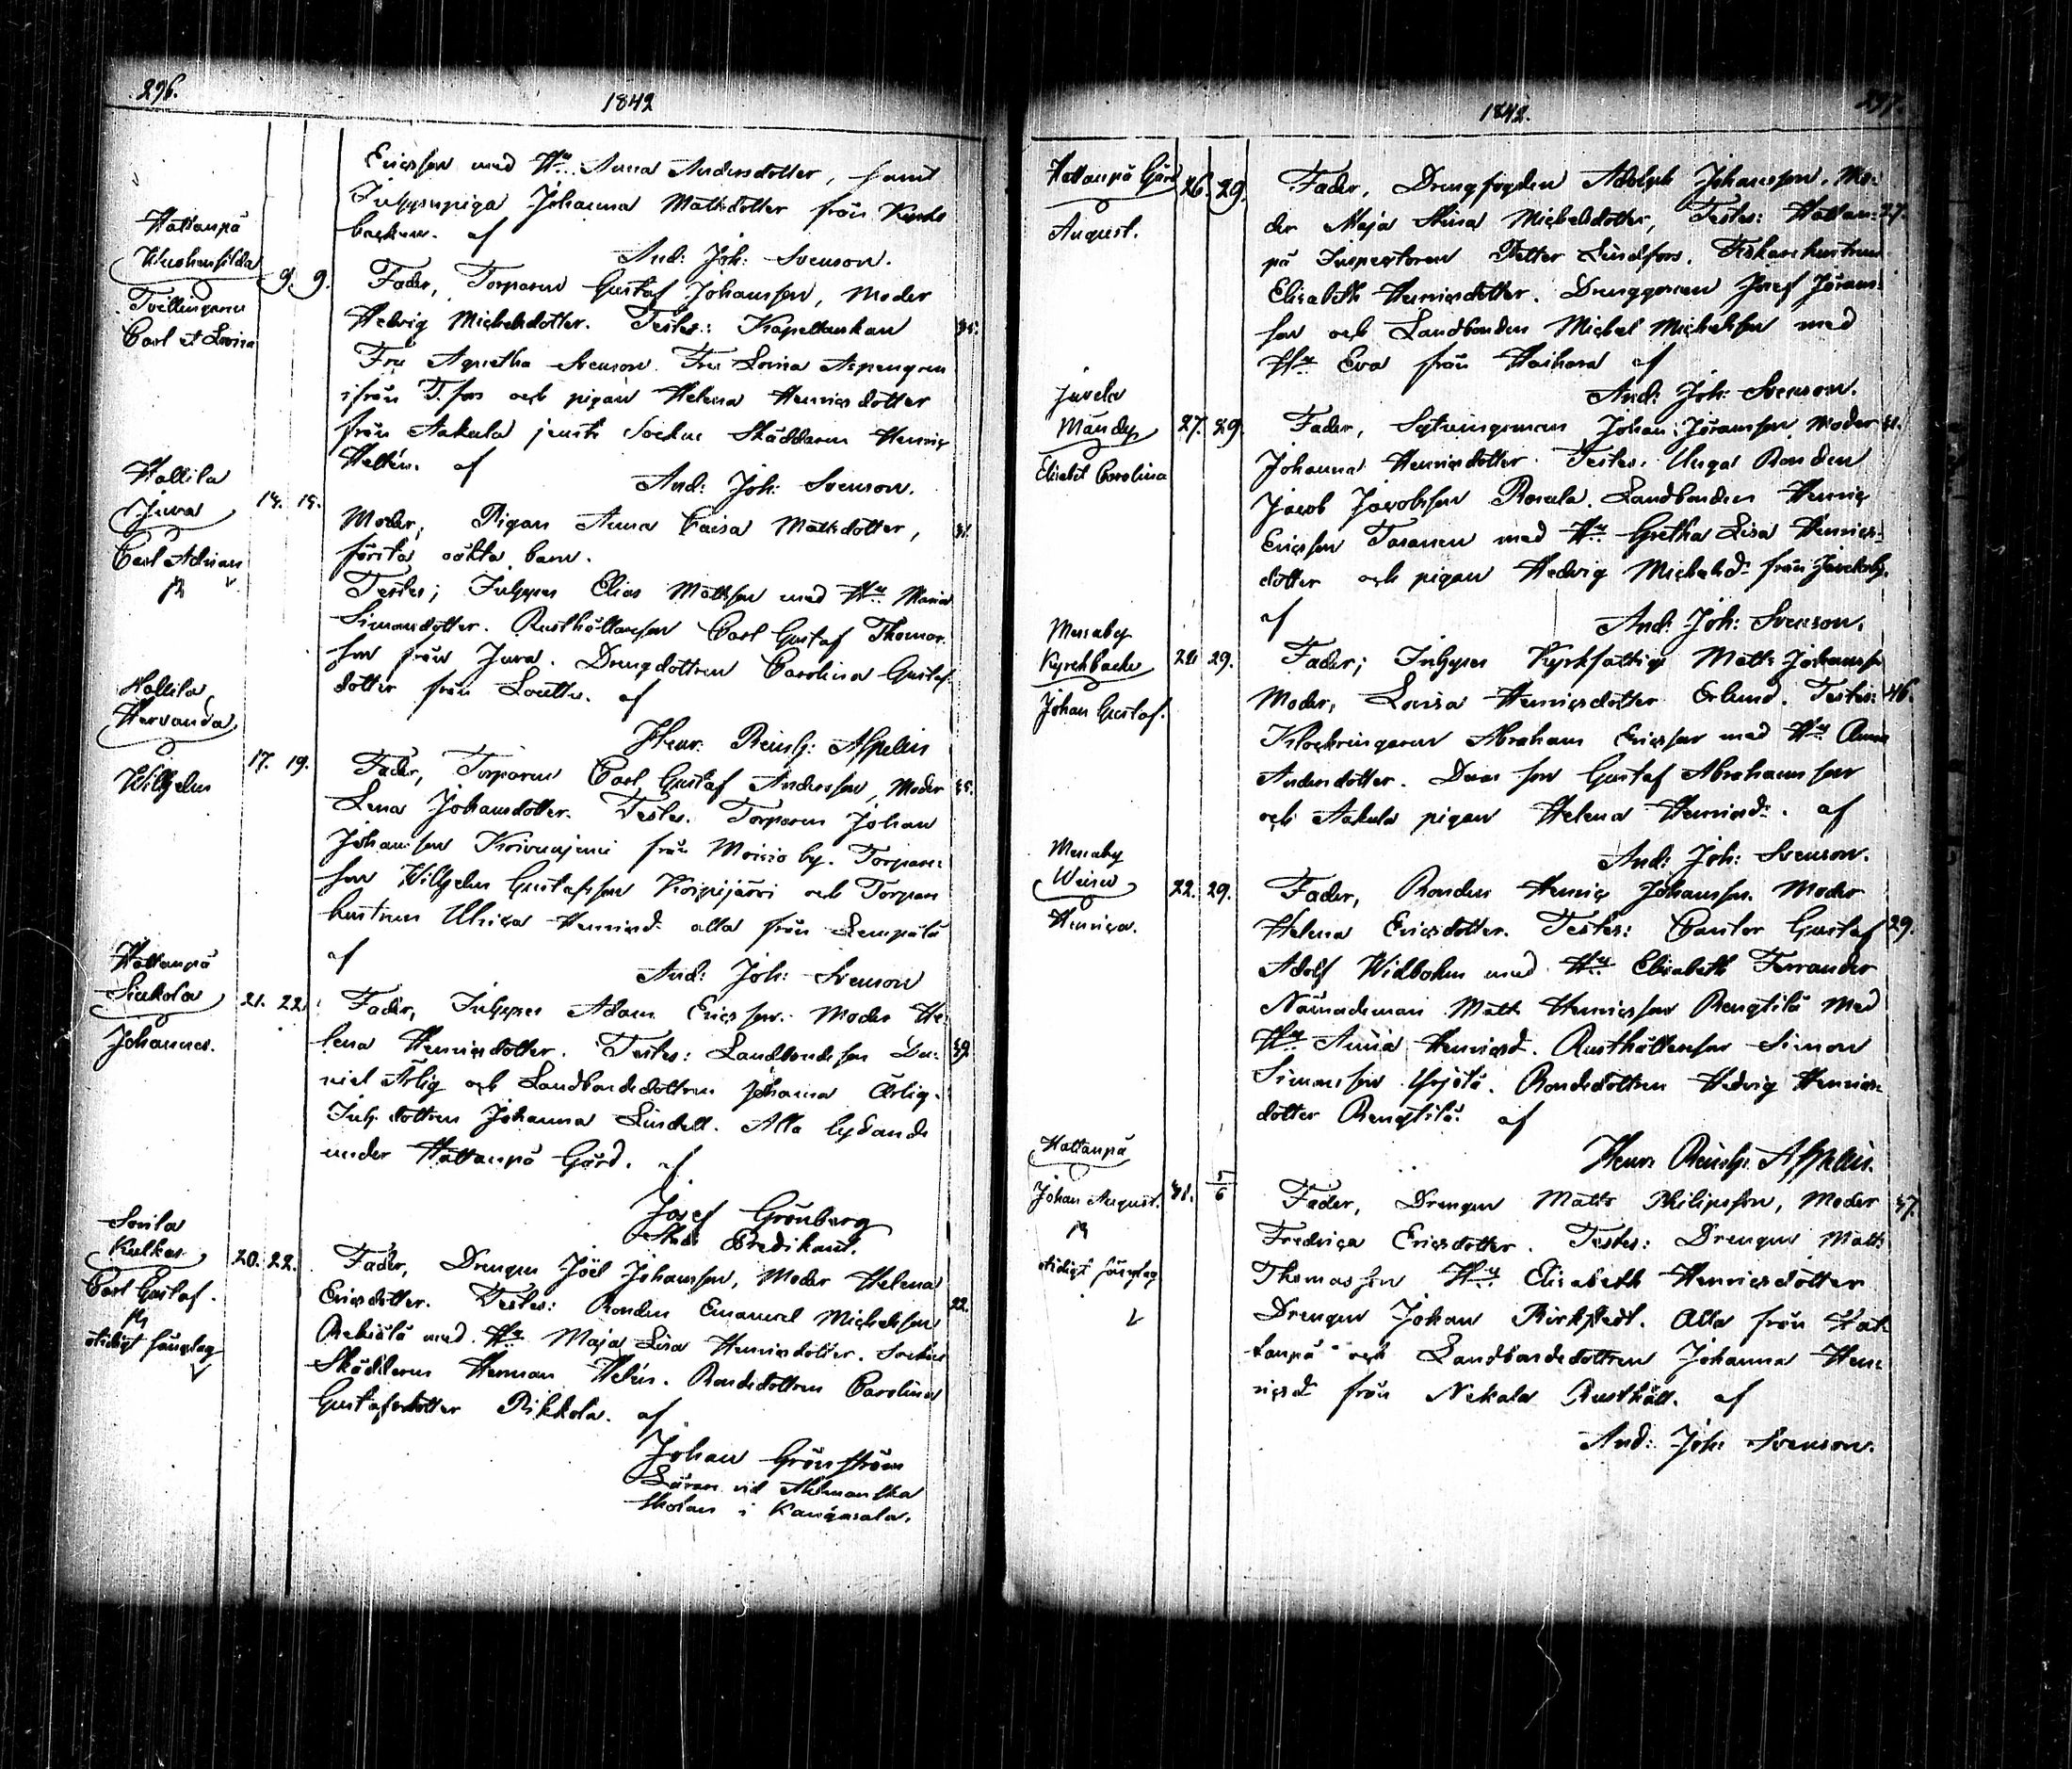 296.
1842
Ericsson med Hu Anna Andersdotter, samt
Inhysespiga Johanna Mattsdotter från Kyrko
backen. af
And: Joh: Svenson.
Hattanpä
Tvillingarne
Carl et Lovisa
9. 9.
Fader, Torparen Gustaf Johansson, Moder
Hedvig Michelsdotter. Testes: Kapellankan
Fru Agnetha Svenson Fru Lovisa Aspengren
ifrån T.fors och pigan Helena Henricsdotter
från Aakula jemte Sockne Skäddaren Henric
Helén. af
And: Joh: Svenson.
Hallila
Juva
Carl Adrian
14. 15.
Moder, Pigan Anna Caisa Mattsdotter,
första oäkta barn.
Testes; Inhyses Elias Mattsson med Hu Maria
Simonsdotter. Rusthållaresson Carl Gustaf Thomas
son från Juva. Drengdottren Carolina Gustafs
dotter från
af
Henr: Reinh: Aspelin
Hallila
Hervanda
Wilhelm
17. 19.
35.
Fader, Torparen Carl Gustaf Andersson, Moder
Lena Johansdotter. Testes. Torparen Johan
Johansson från Moisio by. Torpare
son Wilhelm Gustafsson och Torpare
hustrun Ulrica Henricsd: alla från Lempälä
af
And: Joh: Svenson
Hattanpä
Sinkola
Johannes.
21. 22.
39
Fader, Inhyses Adam Ericsson. Moder He-
lena Henricsdotter. Testes: Landbondeson Da-
niel Ärlig och Landbondedottren Johanna Ärlig.
Inh. dottren Johanna Lindell. Alla lydande
under Hattanpä Gård. af
Josef Grönberg
Stads Predikant.
Sorila
Kulkas
Carl Gustaf.
otidigt sänglag
20. 22.
22.
Fader, Drengen Joël Johansson, Moder Helena
Ericsdotter. Testes: Bonden Emanuel Michelsson
med Hu Maja Lisa Henricsdotter. Sockne
Skäddaren Herman Helén. Bondedottren Carolina
Gustafsdotter Pikkola. af
Johan Grönström
Lärare vid Ahlmanska
Skolan i Kangasala.
1842.
Hattanpä Gård
August.
26. 29.
27.
Fader, Drengfogden Adolph Johansson. Mo-
der Maja Stina Michelsdotter, Testes: Hattan-
pä Inspectoren Petter Lindfors. Fiskarehustrun
Elisabeth Henricsdotter. Drenggossen Josef Jörans-
son och Landbonden Michel Michelsson med
Hu Eva från Haihara af
And: Joh: Svenson.
Jävelä
Elisabet Carolina
27. 29.
Fader, Johan Jöransson Moder
Johanna Henricsdotter. Testes: Unga Bonden
Jacob Jacobsson. Landbonden Henric
Ericsson med Hu Gretha Lisa Henrics-
dotter och pigan Hedvig Michelsd: från
af
And: Joh: Svenson.
Messuby
Kyrckbacke
Johan Gustaf.
29.
46.
Fader; Inhyses Kyrkfattige Matts Johansson
Moder, Lovisa Henricsdotter Erlund. Testes:
Klockringaren Abraham Ericsson med Hu Anna
Andersdotter. Deras son Gustaf Abrahamsson
och Aakula pigan Helena Henricsd:. af
And: Joh: Svenson.
Messuby
Henrica.
22. 29.
29.
Fader, Bonden Henric Johansson. Moder
Helena Ericsdotter. Testes: Cantor Gustaf
Adolf Widbohm med Hu Elisabeth Ferrander
Nämndeman Matts Henricsson Rengtilä med
Hu Anna Henricsd. Rusthållareson Simon
Simonsson. Bondedottren Hedvig Henrics-
dotter Rengtilä. af
Henr: Reinh: Aspelin.
Hattanpä
Johan August.
otidigt sänglag
31. 5/6
37.
Fader, Drengen Matts Philipsson, Moder
Fredrica Ericsdotter. Testes: Drengen Matts
Thomasson Hu Elisabeth Henricsdotter
Drengen Johan Birkstedt. Alla från Hat-
tanpä och Landbondedottren Johanna Hen-
ricsd: från Nekala Rusthåll. af
And: Joh: Svenson.